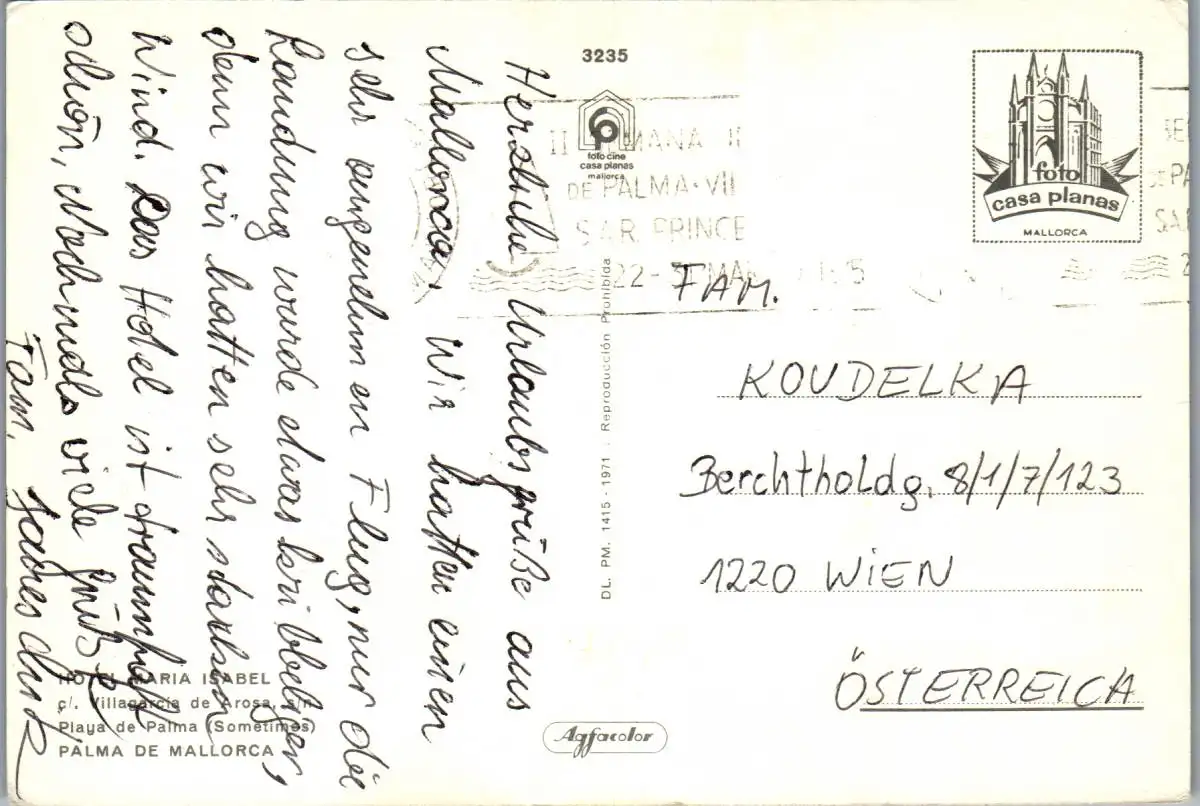 3235
foto cine
casa planas
mallorca
foto
casa planas
MALLORCA
DE PALMA · VII
S.A.R. PRINCE
22 -
Herzliche Urlaubsgrüße aus
Mallorca. Wir hatten einen
sehr angenehmen Flug, nur die
Landung wurde etwas kribbeliger,
denn wir hatten sehr starken
Wind. Das Hotel ist traumhaft
schön, Nochmals viele Grüße
Fam.
FAM.
KOUDELKA
Berchtholdg. 8/1/7/123
1220 WIEN
ÖSTERREICH
DL. PM. 1415 - 1971 . Reproducción Prohibida
HOTEL MARIA ISABEL
c/. Villagarcía de Arosa, s/n.
Playa de Palma (Sometimes)
PALMA DE MALLORCA
Agfacolor